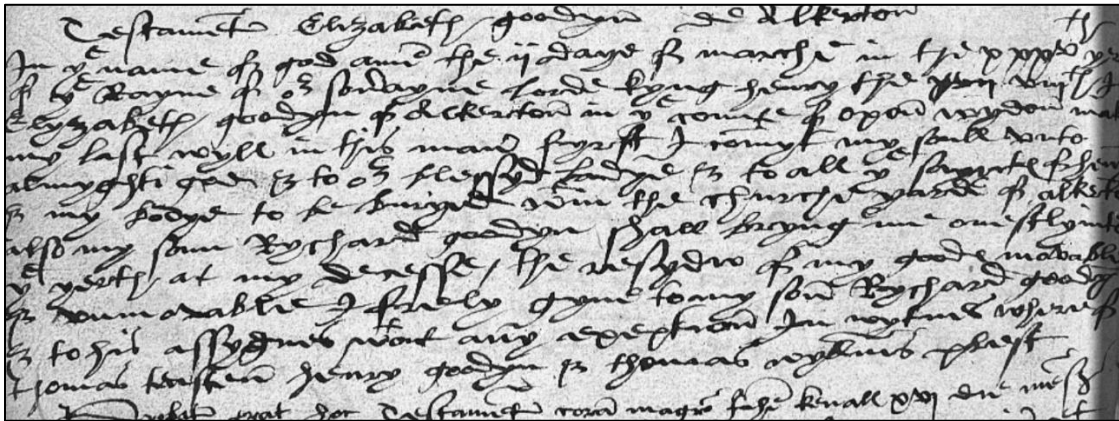 Testament Elizabeth goodyn de Alkerton
In ye name of god amē the ij daye of marche in the xxxv ye
of ye Rayne of or soūayne Lorde kyng henry the viijth
Elyzabeth goodyn of Alkerton in ye comte of oxon wydow ma
my last wyll in this maner fyrst I comyt my soull vnto
almyghti god & to or blessyd Ladye & to all ye
& my bodye to be buryed wtin the churche yarde of alker
also my sonn Rychard goodyn shall bryng me onestly into
ye yerth at my decesse, the resydw of my goods movable
& vnmovable I frely gyve to my sonn Rychard goody
& to his assygnes wtout any exeption In wytnes where
thomas henry goodyn & thomas prest
testament corā magro kenall xvj die